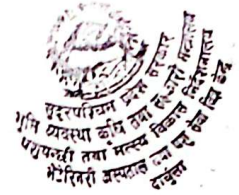 सुदूरपश्चिम प्रदेश सरकार
भूमि व्यवस्था कृषि तथा सहकारी मन्त्रालय
पशुपन्छी तथा मत्स्य विकास निर्देशनालय
भेटेरिनरी अस्पताल तथा पशु सेवा विज्ञ केन्द्र